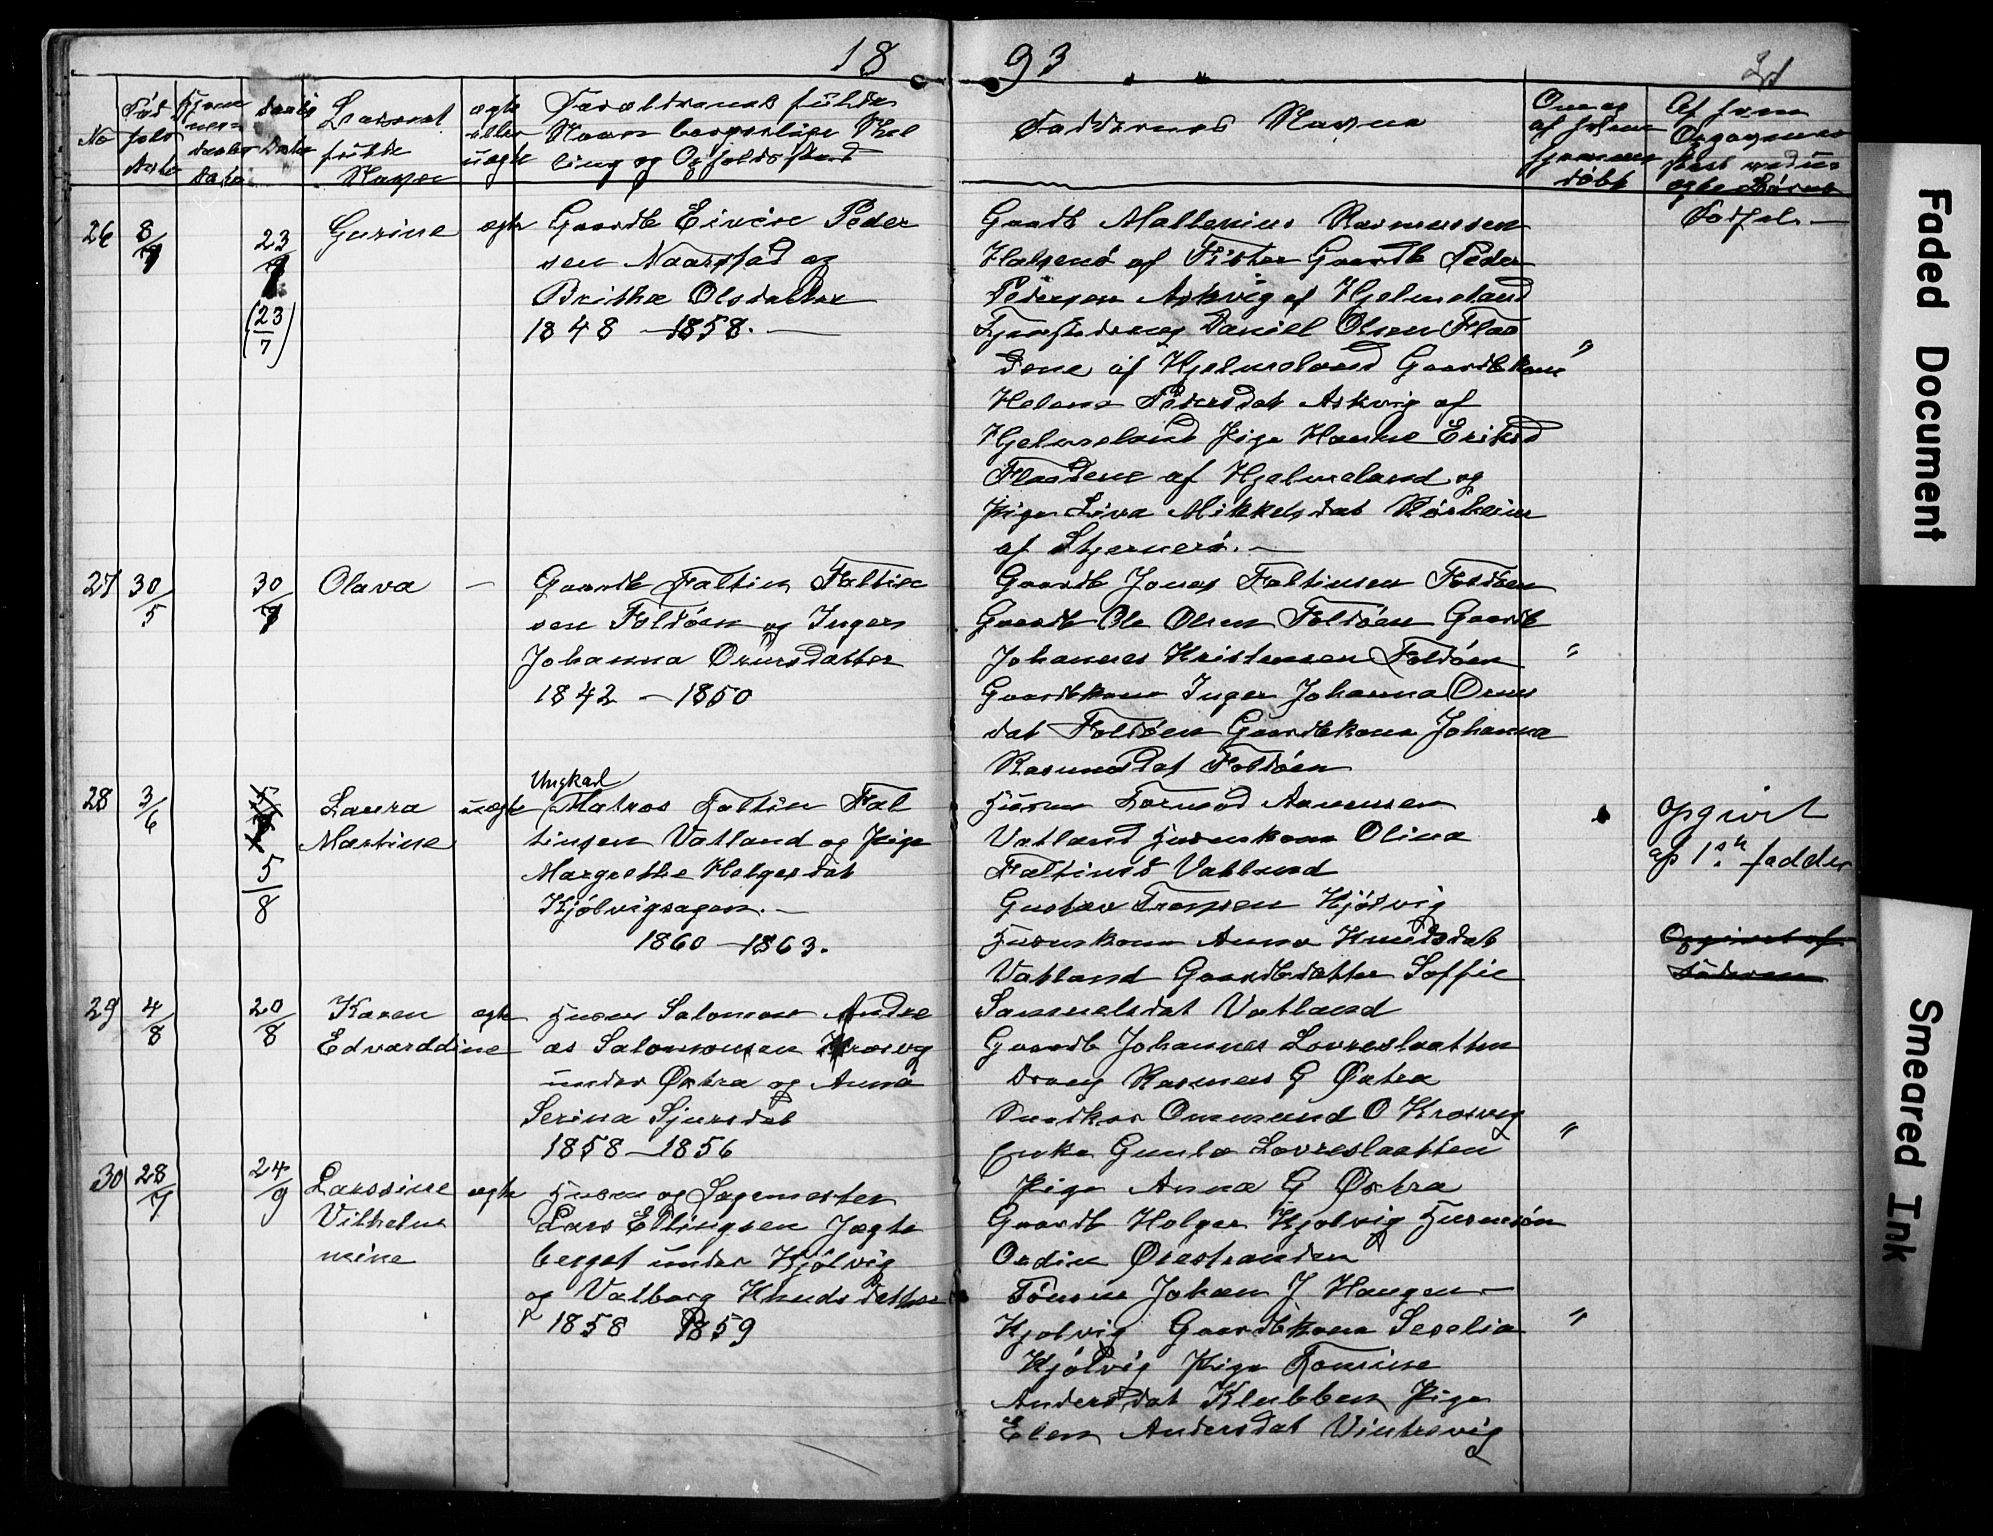 18 93
No
Fød
sels
Dato
Daabs
Dato
Barnet
fulde
Navn
ægte
eller
uægte
Forældrenes fulde
Navn borgerlige Stil
ling og Opholdssted
Faddernes Navne
Om og
af hvem
hjemme
døbt
Af hvem
Opgaven
26 8/7 23/7 (23/7) Gurine ægte
Gaardb Eivin Peder
sen Naarstad og
Britha Olsdatter
1848 – 1858. –
Gaardb Mallenius Rasmussen
Halsenø af Fister Gaardb Peder
Pedersen Askvig af Hjelmeland
Daniel Olsen Flaa
dene af Hjelmeland Gaardbkone
Helene Pedersdat Askvig af
Hjelmeland Pige Hanne Eriksd
Flaadene af Hjelmeland og
Pige Liva Mikkelsdat Rørheim
af Stjernerø. –
"
27 30/5 30/7 Olava –
Gaardb Faltin Faltin
sen Foldøen og Inger
Johanna Ormsdatter
1842 – 1850
Gaardb Jonas Faltinsen Foldøen
Gaardb Ole Olsen Foldøen Gaardb
Johannes Kristensen Foldøen
Gaardbkone Inger Johanna Orms
dat Foldøen Gaardbkone Johanna
Rasmusdat Foldøen
"
28 3/6 5/8 Laura
Martine uægte
Ungkarl
Matros Faltin Fal
tinsen Vatland og Pige
Margrethe Helgesdat
Kjølvigsagen. –
1860 – 1863.
Husm Tormod Aanensen
Vatland Husmkone Olina
Faltinsd Vatland
Gustav Kjølvig
Husmkone Anna Knudsdat
Vatland Gaardbdatter Soffie
Samuelsdat Vatland
opgivet
af 1ste fadder
Opgivet af
Faderen
29 4/8 20/8 Karen
Edvarddine ægte
Husm Salomon Andre
as Salomonsen Krosvig
under Østra og Anna
Serina Sjursdat
1858 – 1856
Gaardb Johannes Lovreslaatten
Dreng Rasmus G Østra
Snedker Ommund O Krosvig
Enke Gunla Lovreslaatten
Pige Anna G Østra
"
30 28/7 24/9 Larssine
Vilhelm
mine ægte
Husm og Sagmester
Lars Ellingsen Jægte
berget under Kjølvig
og Valborg Knudsdatter
1858 1859
Gaardb Holger Kjølvig Husmsøn
Ordin Ørestranden
Tømm Johan J Haugen
Kjølvig Gaardbkone Seselia
Kjølvig Pige Tomine
Andersdat Klubben Pige
Elen Andersdat Vintrevig
"
Faded Document
Smeared Ink